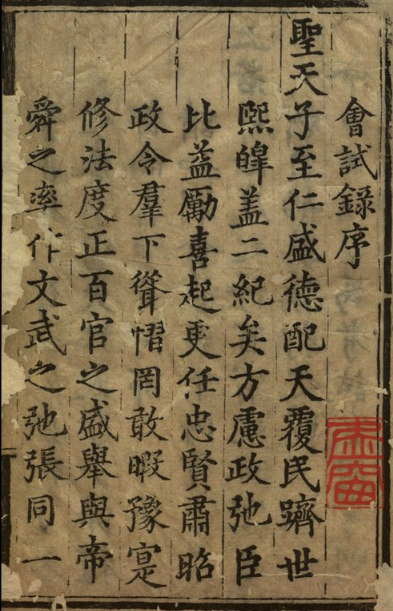 會試錄序
聖天子至仁盛德配天覆民躋世
熙皥盖二紀矣方慮政弛臣
比益勵喜起更任忠賢肅昭
政令羣下聳慴罔敢暇豫寔
修法度正百官之盛舉與帝
舜之率作文武之弛張同一